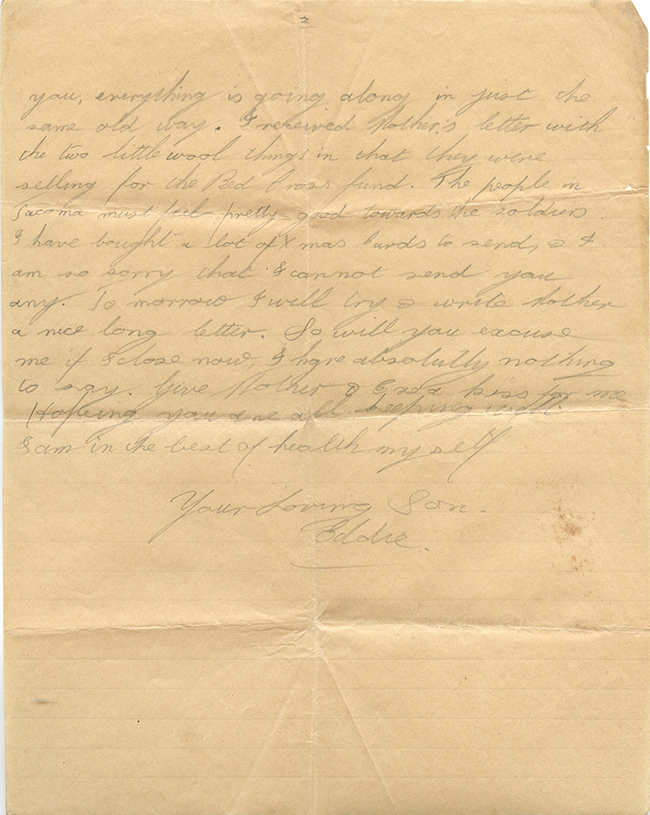 2
you, everything is going along in just the
same old way. I received Mother's letter with
the two little wool things in that they were
selling for the Red Cross fund. The people in
Tacoma must feel pretty good towards the soldiers.
I have bought a lot of Xmas Cards to send, & I
am so sorry that I cannot send you
any. To morrow I will try & write Mother
a nice long letter. So will you excuse
me if I close now, I have absolutly nothing
to say. Give Mother & a kiss for me
Hopeing you are all keeping well.
I am in the best of health my self
Your Loving Son.
Eddie.